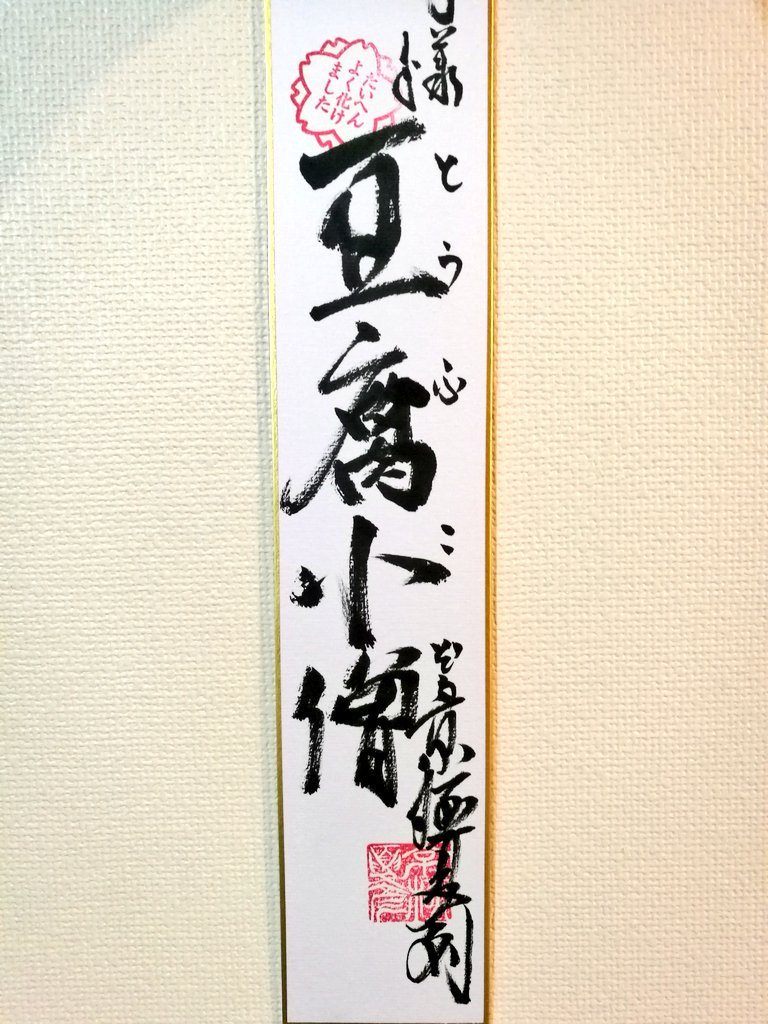 様
たいへん
よく化け
ました
とうふこぞう
豆腐小僧
京極夏彦